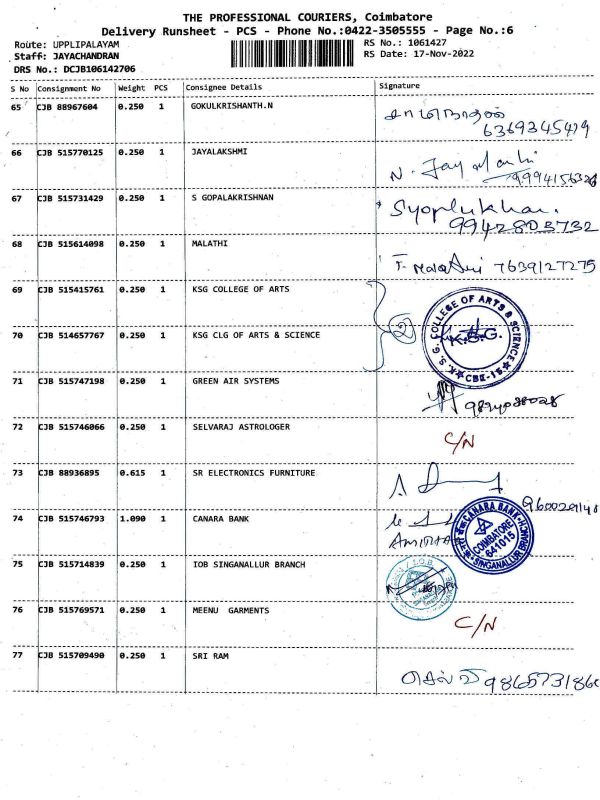 THE PROFESSIONAL COURIERS, Coimbatore
Delivery Runsheet - PCS - Phone No.:0422-3505555 - Page No.:6
Route: UPPLIPALAYAM RS No.: 1061427
Staff: JAYACHANDRAN RS Date: 17-Nov-2022
DRS No.: DCJB106142706
S No Consignment No Weight PCS Consignee Details Signature
65 CJB 88967604 0.250 1 GOKULKRISHANTH.N
6369345419
66 CJB 515770125 0.250 1 JAYALAKSHMI
N.
67 CJB 515731429 0.250 1 S GOPALAKRISHNAN
9942803732
68 CJB 515614098 0.250 1 MALATHI
7639127275
69 CJB 515415761 0.250 1 KSG COLLEGE OF ARTS
K. S. G. COLLEGE OF ARTS & SCIENCE
2 K.S.G.
CBE-15
70 CJB 514657767 0.250 1 KSG CLG OF ARTS & SCIENCE
71 CJB 515747198 0.250 1 GREEN AIR SYSTEMS
72 CJB 515746066 0.250 1 SELVARAJ ASTROLOGER
C/N
73 CJB 88936895 0.615 1 SR ELECTRONICS FURNITURE
74 CJB 515746793 1.090 1 CANARA BANK
CANARA BANK
COIMBATORE
641015
SINGANALLUR BRANCH
75 CJB 515714839 0.250 1 IOB SINGANALLUR BRANCH
76 CJB 515769571 0.250 1 MEENU GARMENTS
C/N
77 CJB 515709490 0.250 1 SRI RAM